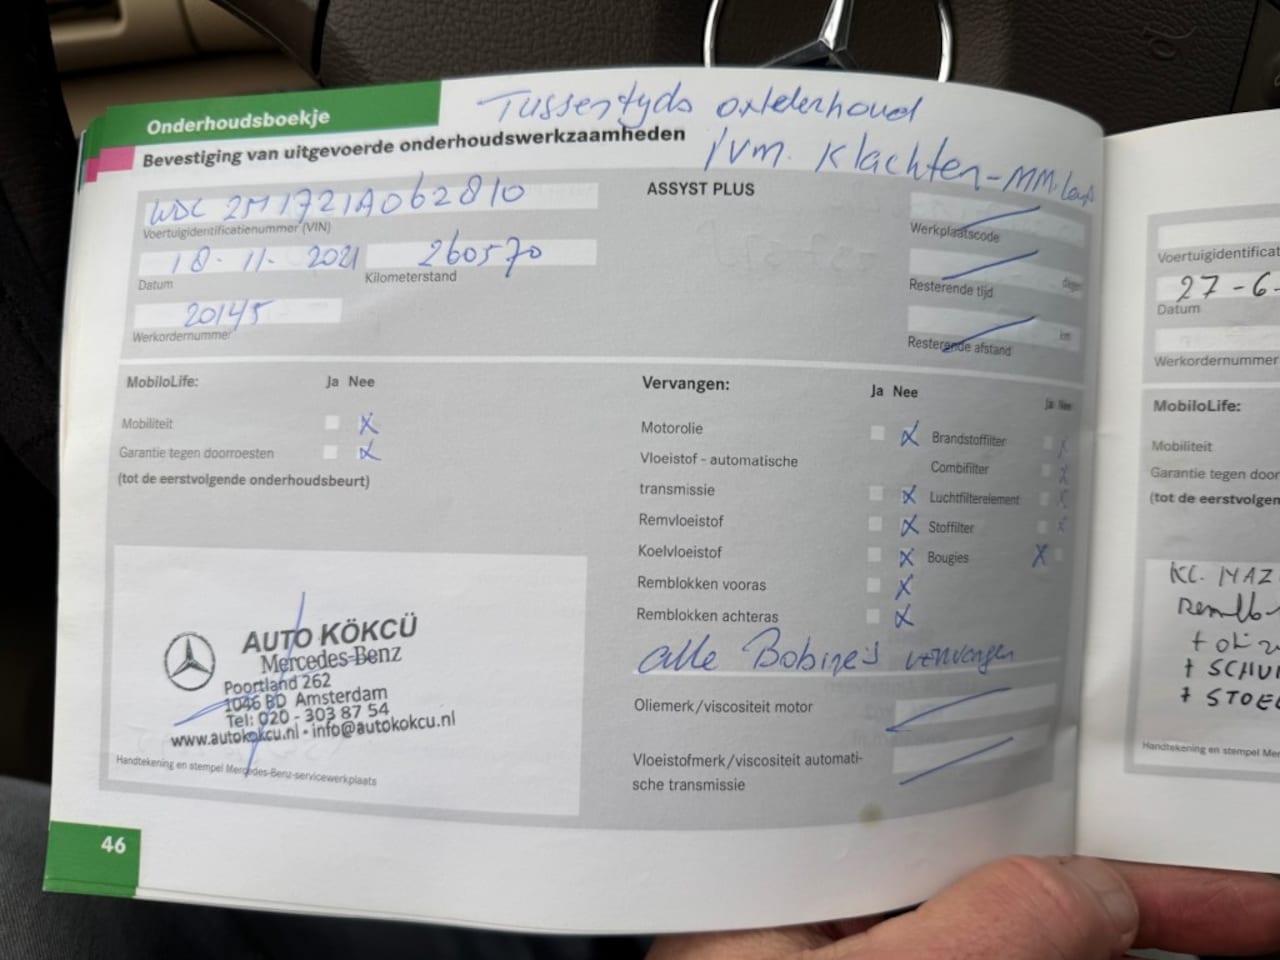 Onderhoudsboekje
Tussentyds onderhoud
Bevestiging van uitgevoerde onderhoudswerkzaamheden
ivm. Klachten-MM.
WDC 2M1721A062810
Voertuigidentificatienummer (VIN)
18-11-2021
Datum
260570
Kilometerstand
20145
Werkordernummer
ASSYST PLUS
Werkplaatscode
dagen
Resterende tijd
km
Resterende afstand
MobiloLife:
Ja Nee
Mobiliteit X
Garantie tegen doorroesten X
(tot de eerstvolgende onderhoudsbeurt)
Vervangen:
Ja Nee
Motorolie X
Vloeistof - automatische
transmissie X
Remvloeistof X
Koelvloeistof X
Remblokken vooras X
Remblokken achteras X
Ja Nee
Brandstoffilter X
Combifilter X
Luchtfilterelement X
Stoffilter X
Bougies X
alle Bobine's vervangen
Oliemerk/viscositeit motor
Vloeistofmerk/viscositeit automati-
sche transmissie
AUTO KÖKCÜ
Mercedes-Benz
Poortland 262
1046 BD Amsterdam
Tel: 020 - 303 87 54
www.autokokcu.nl • info@autokokcu.nl
Handtekening en stempel Mercedes-Benz-servicewerkplaats
46
Voertuigidentificat
27-6-
Datum
Werkordernummer
MobiloLife:
Mobiliteit
Garantie tegen door
(tot de eerstvolgen
KL.
Remblo
+ SCHUI
+ STOEL
Handtekening en stempel Mer